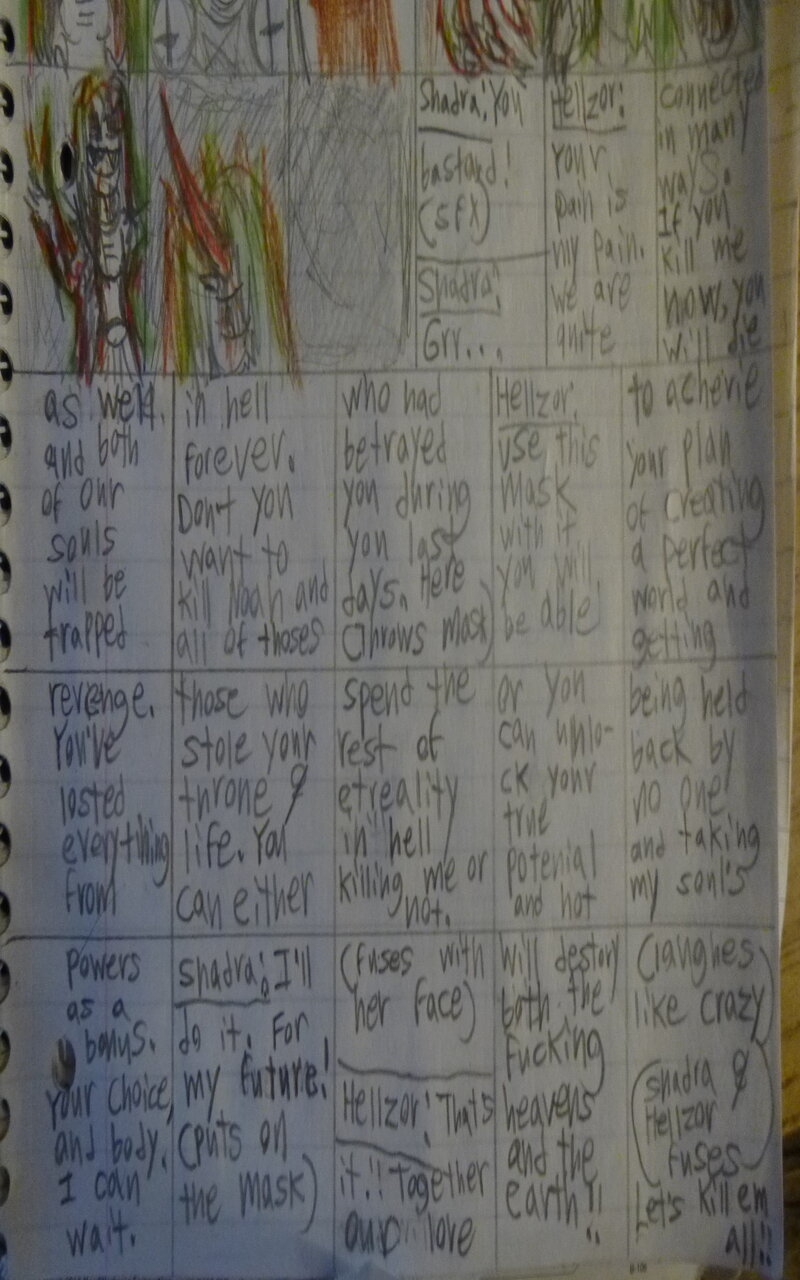 Shadra: You
bastard!
(sfx)
Shadra:
Grr...
Hellzor:
Your
pain is
my pain.
we are
quite
connected
in many
ways.
If you
kill me
now, you
will die
as well.
and both
of our
souls
will be
trapped
in hell
forever.
Don't you
want to
kill Noah and
all of thoses
who had
betrayed
you during
you last
days. Here
(throws mask)
Hellzor:
Use this
mask
with it
you will
be able
to acheive
your plan
of creating
a perfect
world and
getting
revenge.
You've
losted
everything
from
those who
stole your
throne &
life. You
can either
spend the
rest of
etreality
in hell
killing me or
not.
or you
can unlo-
ck your
true
potenial
and not
being held
back by
no one
and taking
my soul's
powers
as a
bonus.
Your choice,
and body.
I can
wait.
Shadra: I'll
do it. For
my future!
(puts on
the mask)
(fuses with
her face)
Hellzor: That's
it!! Together
our love
will destory
both the
fucking
heavens
and the
earth!!
(laughes
like crazy)
(Shadra &
Hellzor
fuses)
Let's kill em
all!!